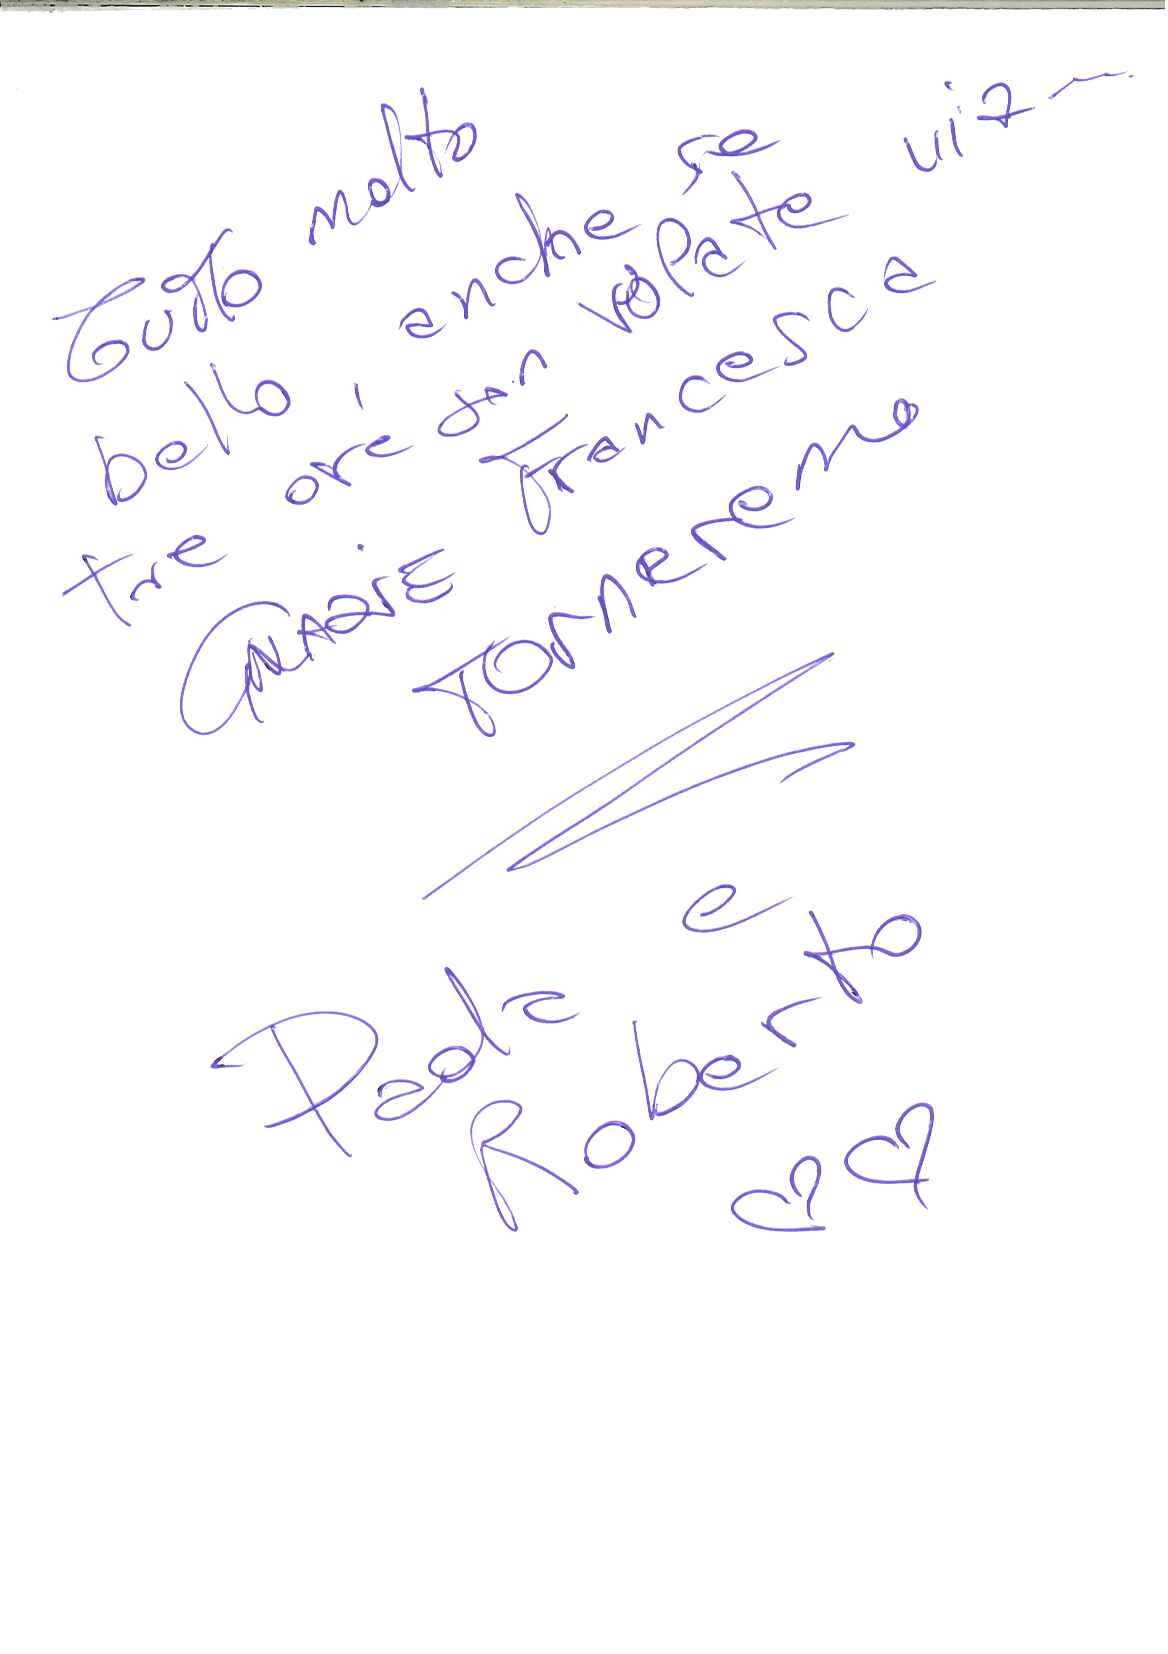 Tutto molto
bello, anche se
tre ore son volate via
GRAZIE Francesca
TORNEREMO
Paola e
Roberto